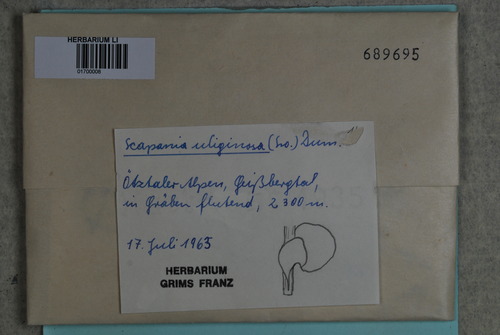 HERBARIUM LI
01700008
689695
Scapania uliginosa (Sw.) Dum.
Ötztaler Alpen, Gaißbergtal,
in Gräben flutend, 2300 m.
17. Juli 1965
HERBARIUM
GRIMS FRANZ